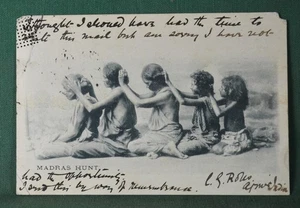 I thought I should have had the time to
this mail but am sorry I have not
MADRAS HUNT
had the opportunity
I send this by way of remembrance.
C. G.